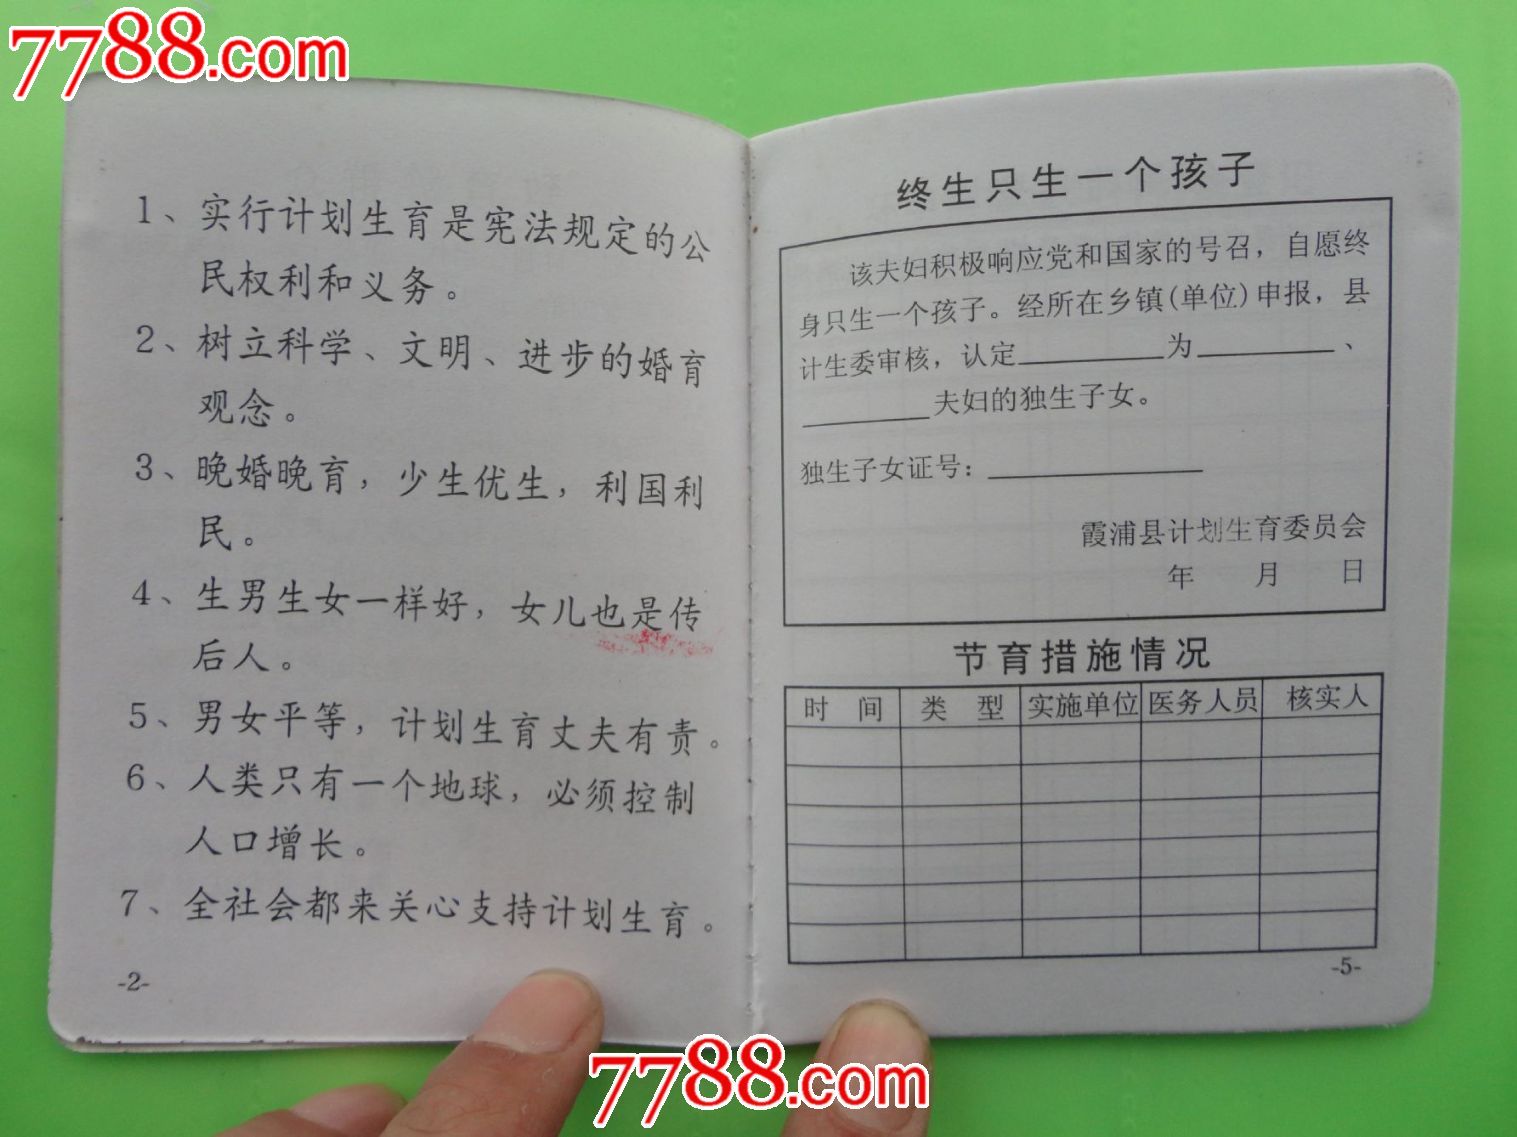 7788.com
1、实行计划生育是宪法规定的公
民权利和义务。
2、树立科学、文明、进步的婚育
观念。
3、晚婚晚育，少生优生，利国利
民。
4、生男生女一样好，女儿也是传
后人。
5、男女平等，计划生育丈夫有责。
6、人类只有一个地球，必须控制
人口增长。
7、全社会都来关心支持计划生育。
-2-
终生只生一个孩子
该夫妇积极响应党和国家的号召，自愿终
身只生一个孩子。经所在乡镇(单位)申报，县
计生委审核，认定__________为__________、
__________夫妇的独生子女。
独生子女证号：__________
霞浦县计划生育委员会
年 月 日
节育措施情况
时 间 类 型 实施单位 医务人员 核实人
-5-
7788.com